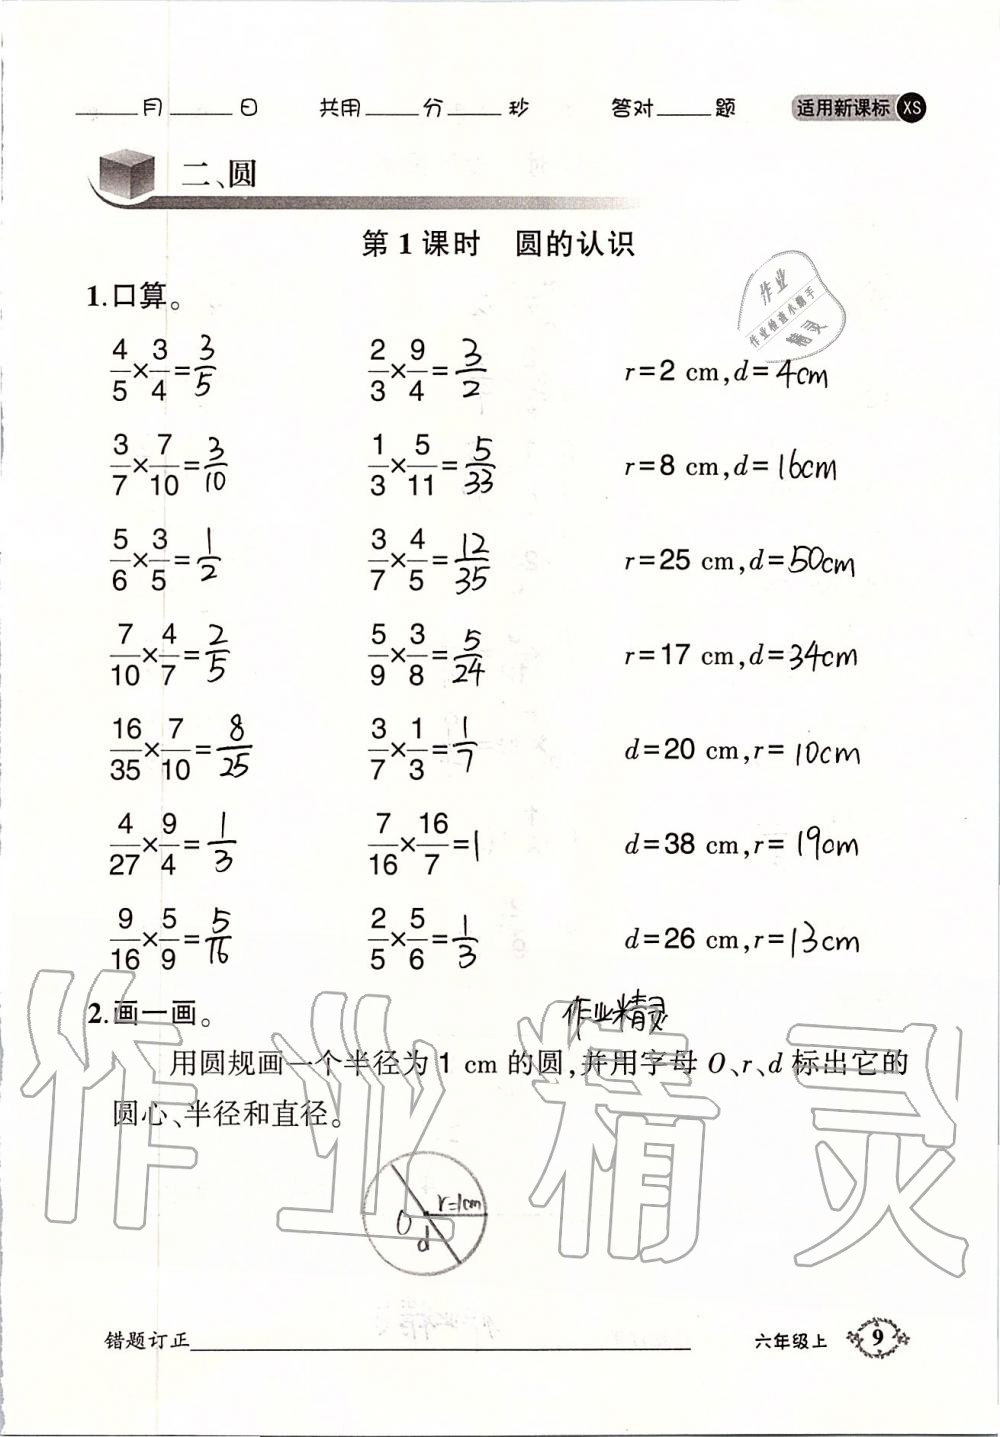 ____月____日 共用____分____秒 答对____题 适用新课标 XS
二、圆
第1课时 圆的认识
作业
作业检查小助手
精灵
1.口算。
4/5×3/4=3/5 2/3×9/4=3/2 r=2 cm,d=4cm
3/7×7/10=3/10 1/3×5/11=5/33 r=8 cm,d=16cm
5/6×3/5=1/2 3/7×4/5=12/35 r=25 cm,d=50cm
7/10×4/7=2/5 5/9×3/8=5/24 r=17 cm,d=34cm
16/35×7/10=8/25 3/7×1/3=1/7 d=20 cm,r=10cm
4/27×9/4=1/3 7/16×16/7=1 d=38 cm,r=19cm
9/16×5/9=5/16 2/5×5/6=1/3 d=26 cm,r=13cm
2.画一画。 作业精灵
用圆规画一个半径为1 cm的圆,并用字母O、r、d标出它的
圆心、半径和直径。
作业精灵
r=1cm
O
d
错题订正____ 六年级上 9